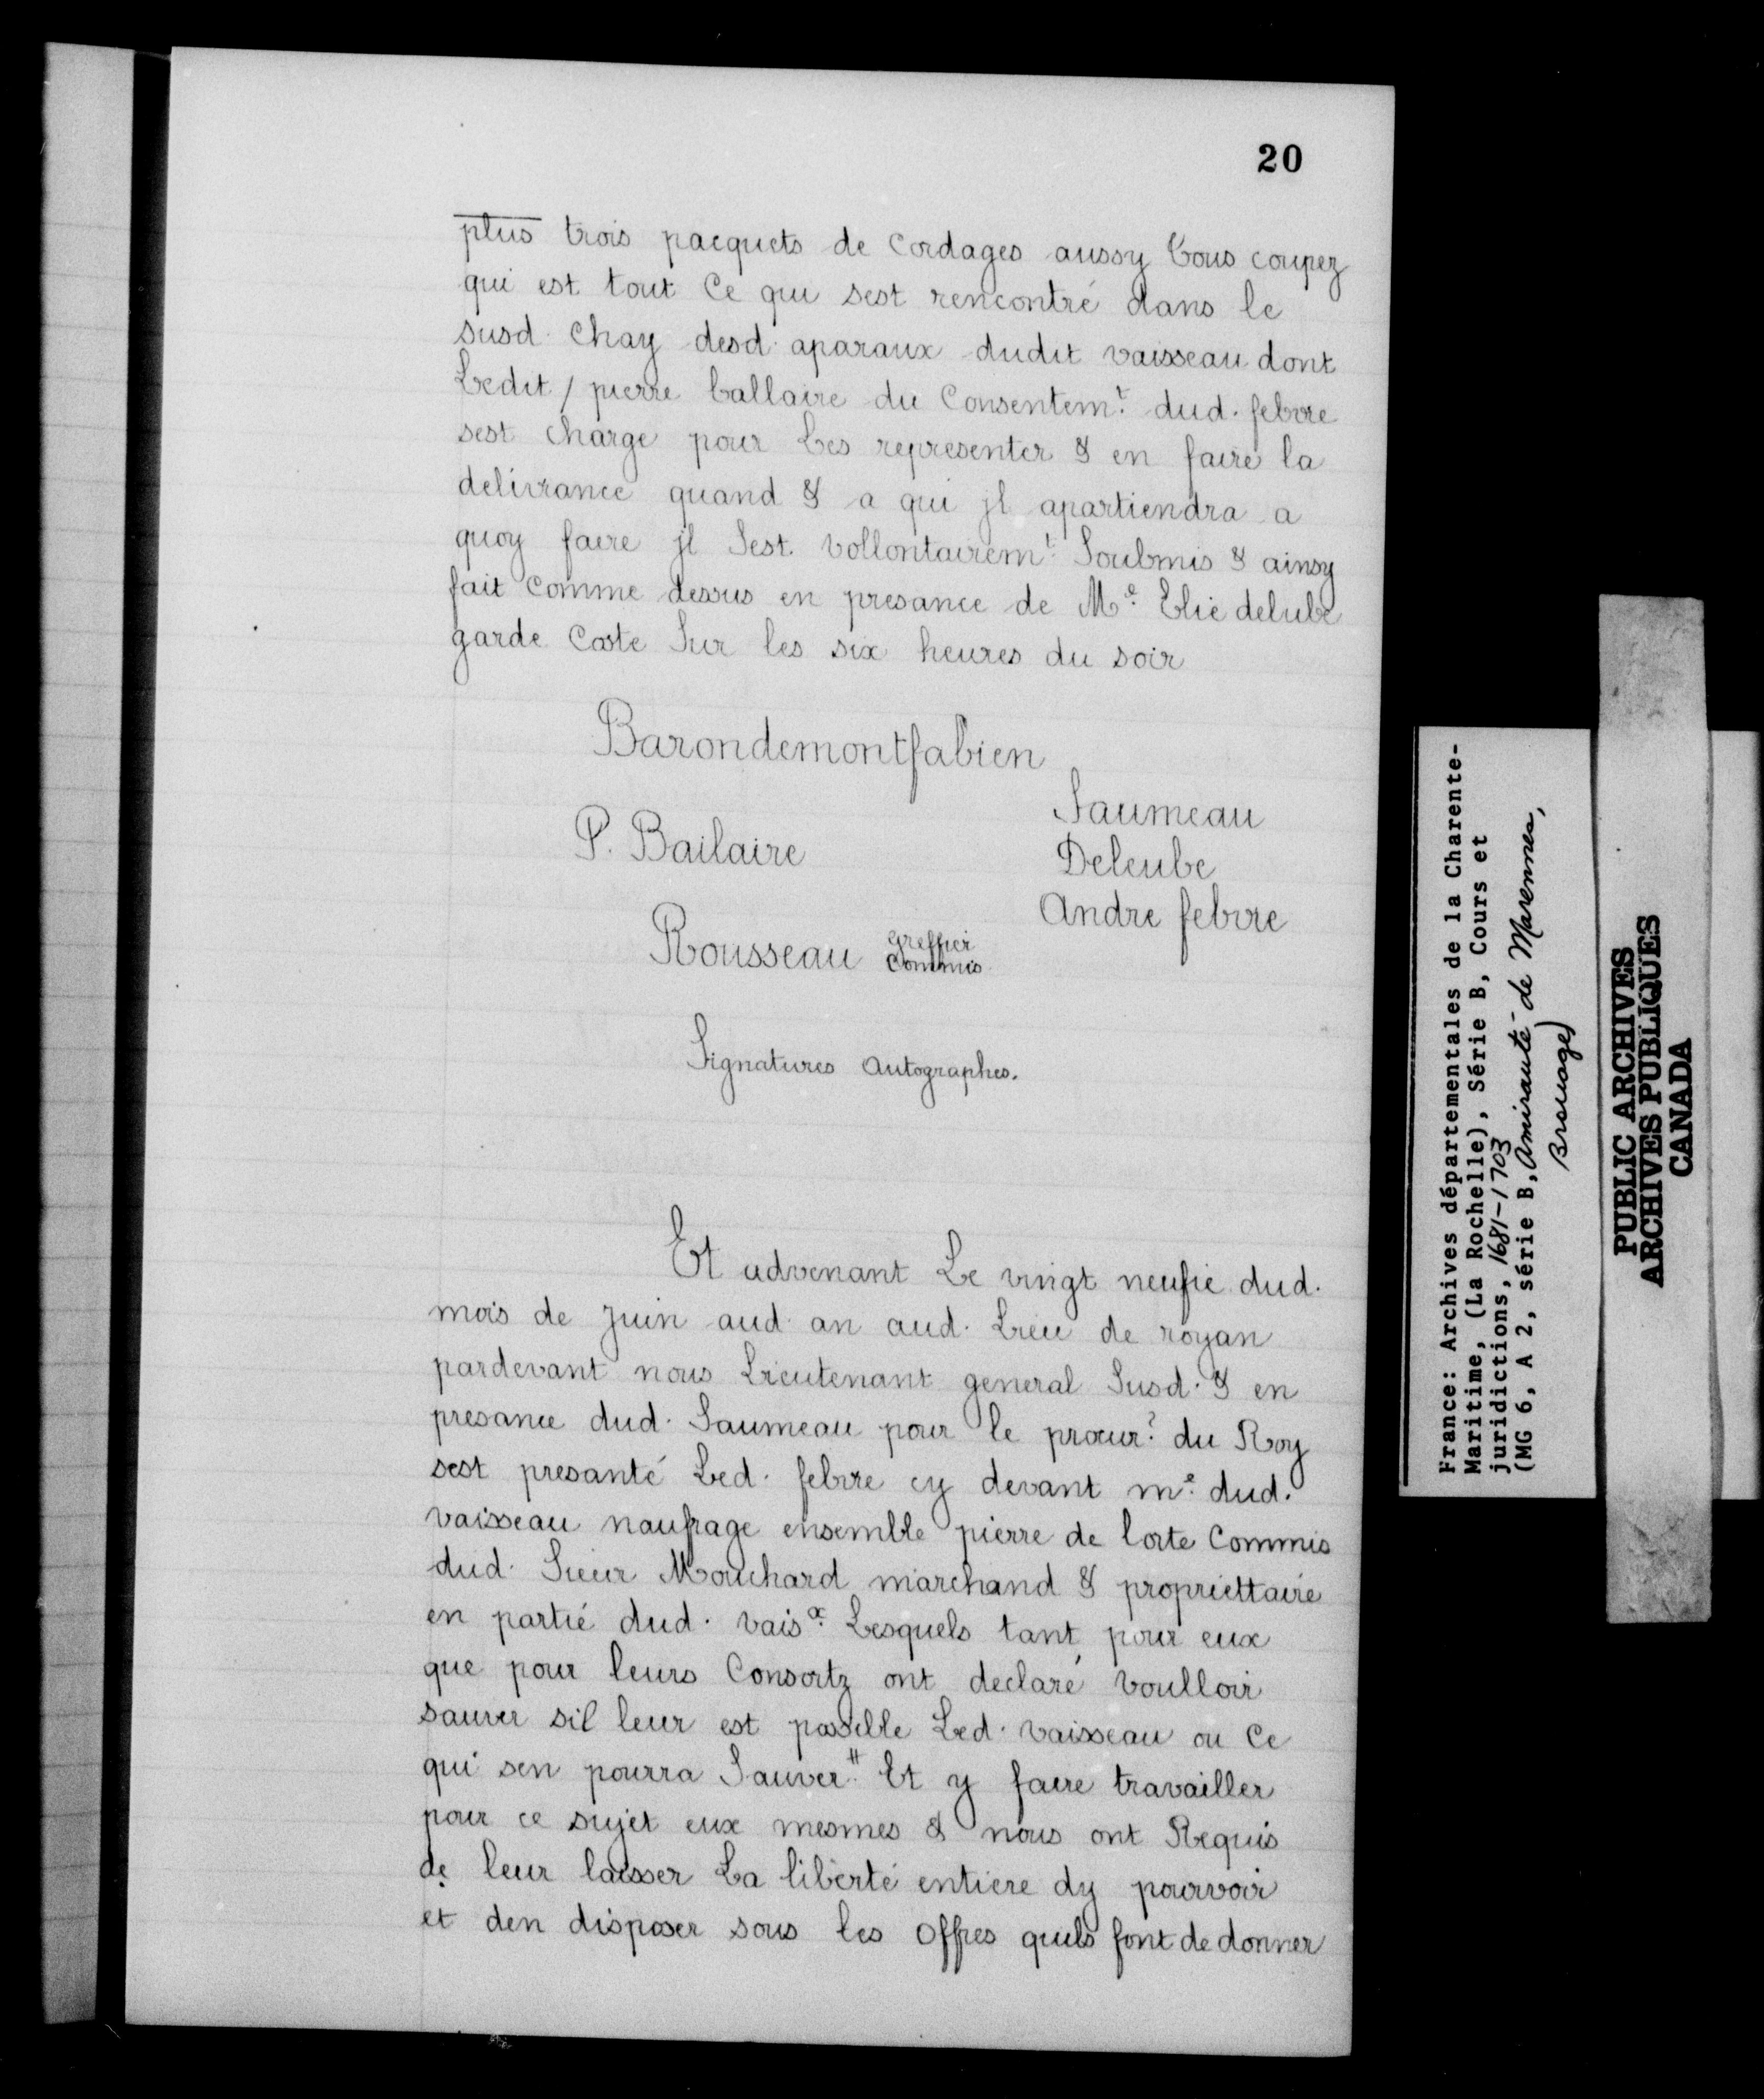 20
plus trois pacquets de Cordages aussy tous coupez
qui est tout Ce qui sest rencontré dans le
susd. Chay desd. aparaux dudit vaisseau dont
Ledit / pierre ballaire du Consentemt. dud. febvre
sest charge pour Les representer & en faire la
delivrance quand & a qui jl apartiendra a
quoy faire jl Sest vollontairemt. Soubmis & ainsy
fait Comme dessus en presance de Me. Elie delube
garde Coste Sur les six heures du soir
Barondemontfabien
Saumeau
P. Bailaire
Deleube
Andre febvre
Rousseau greffier Commis
Signatures Autographes.
Et advenant Le vingt neufie dud.
mois de Juin aud. an aud. Lieu de royan
pardevant nous Lieutenant general Susd. & en
presance dud. Saumeau pour le procur. du Roy
sest presanté Led. febvre cy devant me. dud.
vaisseau naufrage ensemble pierre de lorte Commis
dud. Sieur Mouchard marchand & propriettaire
en partie dud. vaisx. Lesquels tant pour eux
que pour leurs Consortz ont declaré voulloir
sauver sil leur est possible Led. vaisseau ou Ce
qui sen pourra Sauver Et y faire travailler
pour ce sujet eux mesmes & nous ont Requis
de leur laisser La liberté entiere dy pourvoir
et den disposer sous les offres quils font de donner
France: Archives départementales de la Charente-
Maritime, (La Rochelle), Série B, Cours et
juridictions, 1681-1703
(MG 6, A 2, série B, Amirauté de Marennes,
Brouage)
PUBLIC ARCHIVES
ARCHIVES PUBLIQUES
CANADA